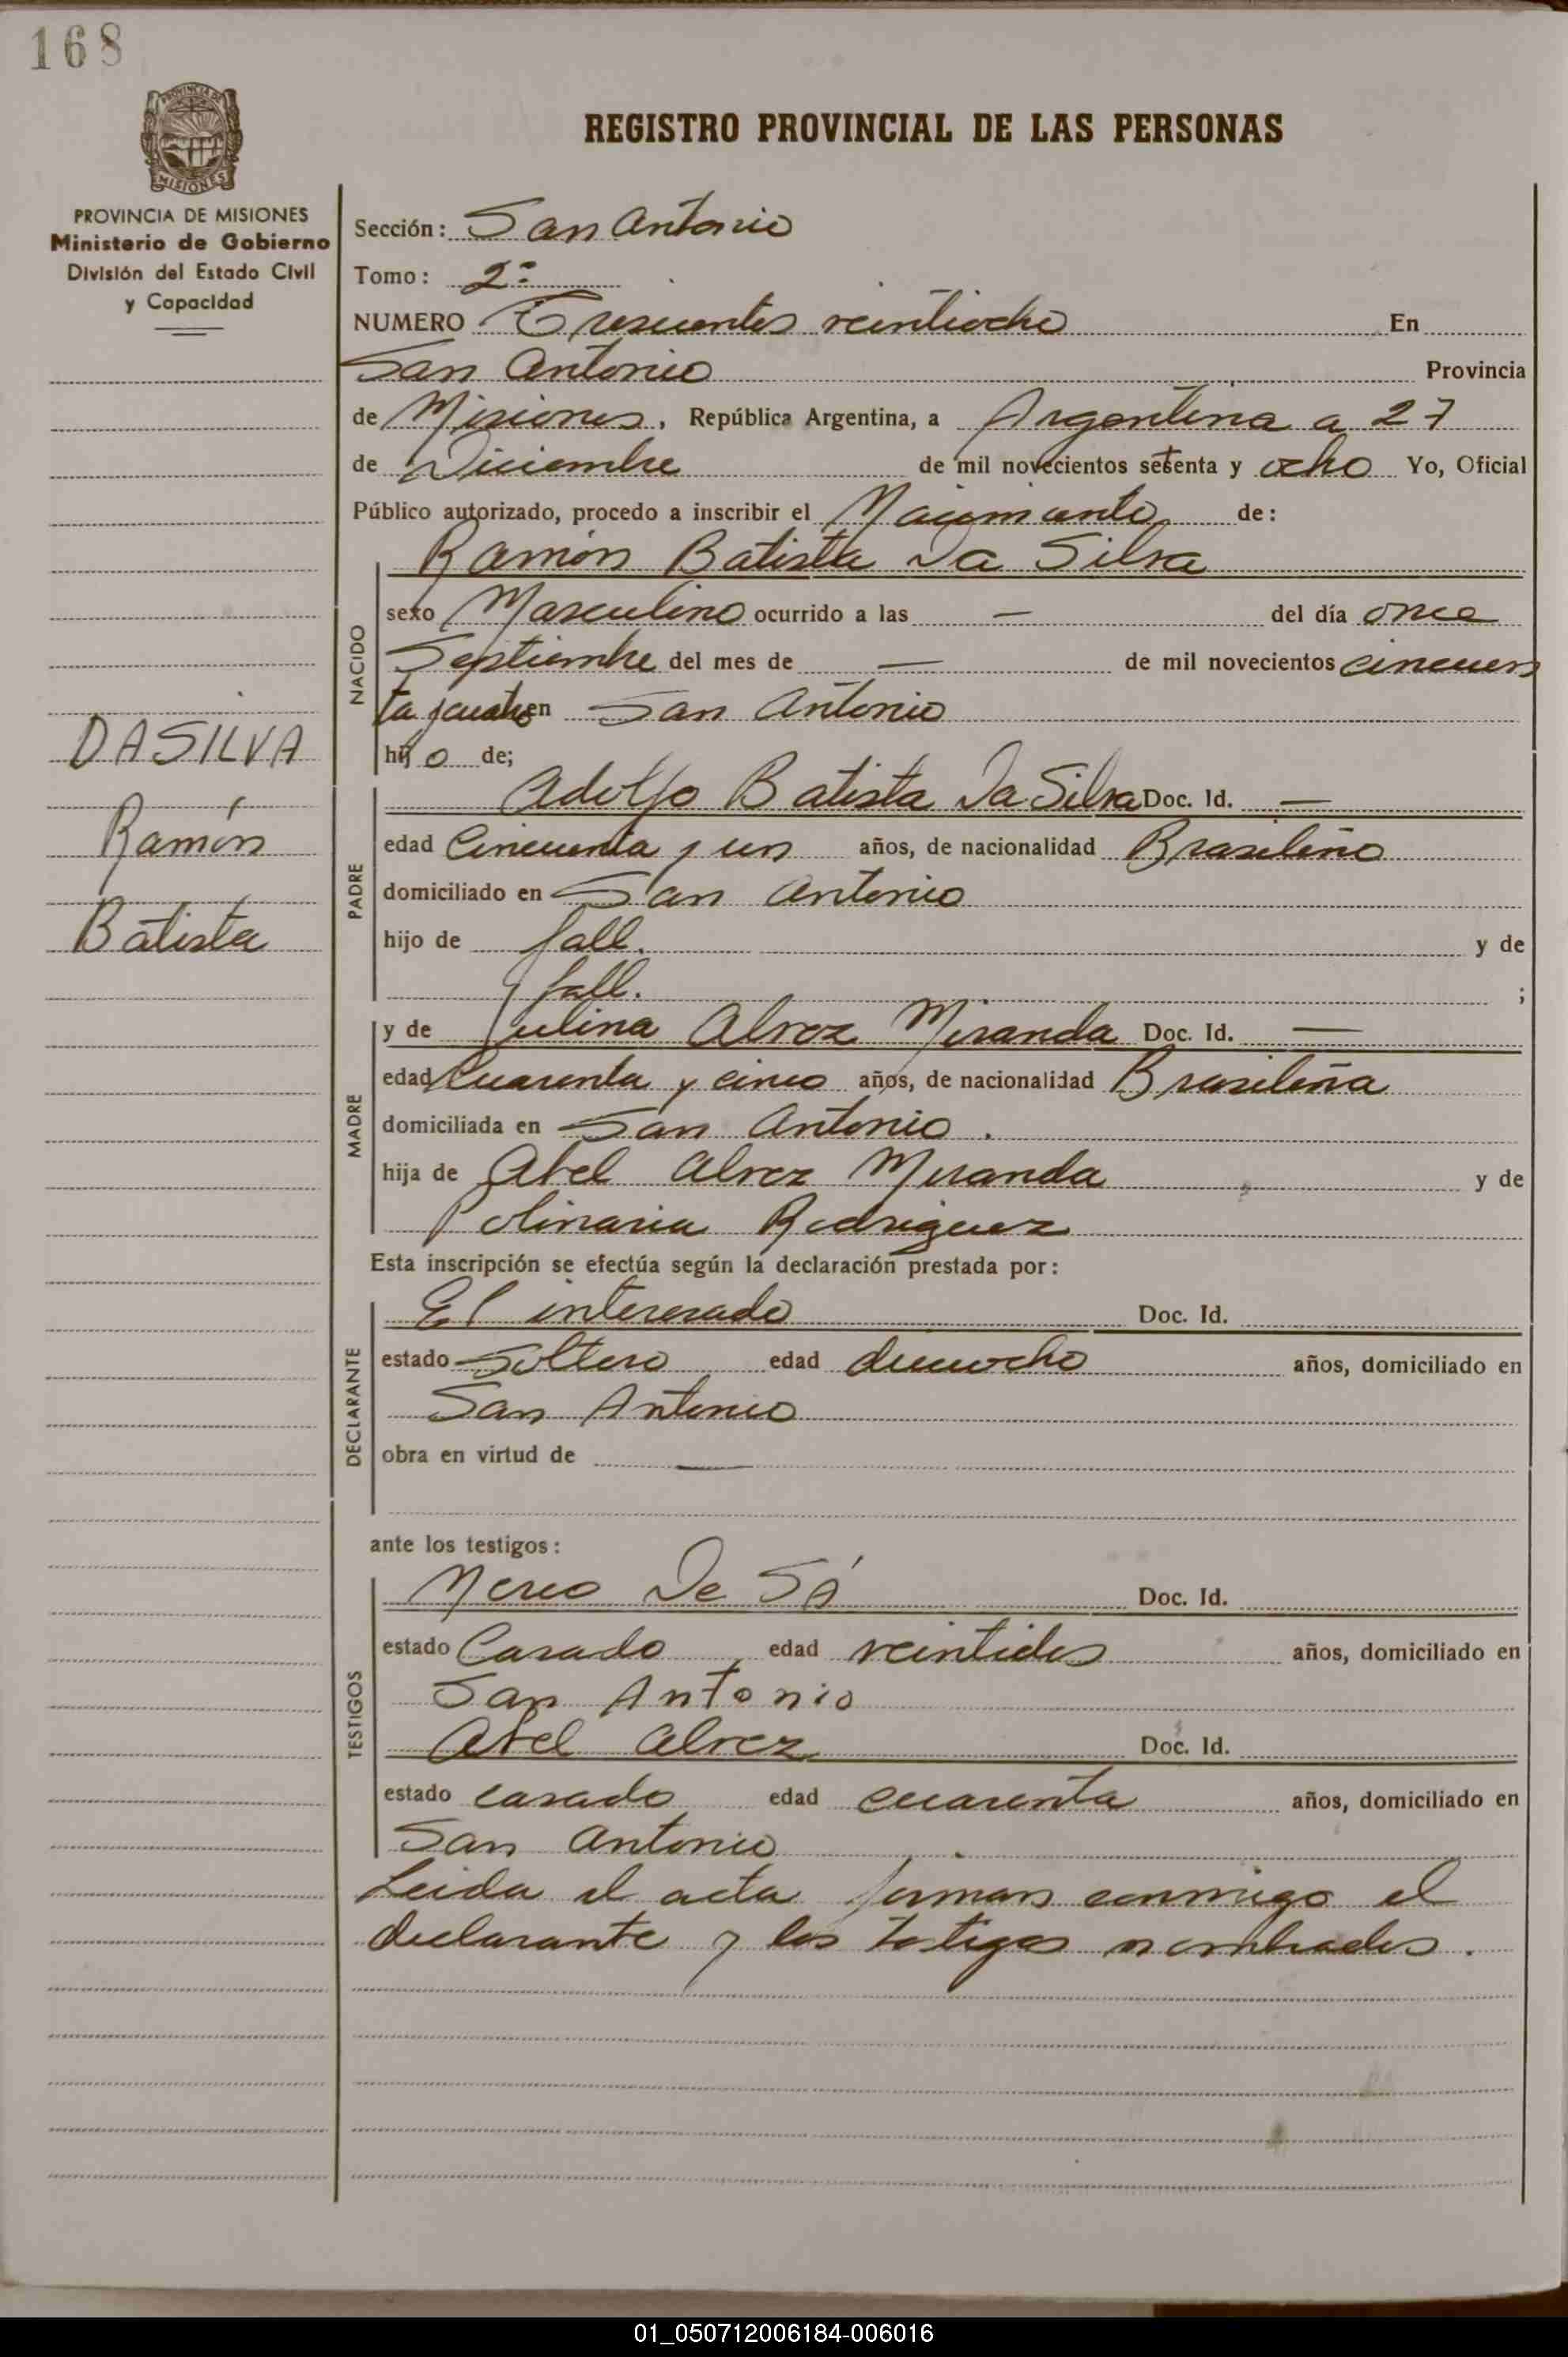 168
PROVINCIA DE MISIONES
PROVINCIA DE MISIONES
Ministerio de Gobierno
División del Estado Civil
y Capacidad
DASILVA
Ramón
Batista
REGISTRO PROVINCIAL DE LAS PERSONAS
Sección: San Antonio
Tomo: 2º
NUMERO Trescientos veintiocho En
San Antonio Provincia
de Misiones, República Argentina, a Argentina a 27
de Diciembre de mil novecientos setenta y ocho Yo, Oficial
Público autorizado, procedo a inscribir el Nacimiento de:
NACIDO
Ramón Batista Da Silva
sexo Masculino ocurrido a las — del día once
Septiembre del mes de — de mil novecientos cincuen
ta y cuatro en San Antonio
hijo de;
PADRE
Adolfo Batista Da Silva Doc. Id. —
edad Cincuenta y un años, de nacionalidad Brasileño
domiciliado en San Antonio
hijo de fall. y de
fall. ;
MADRE
y de Julina Alvez Miranda Doc. Id. —
edad Cuarenta y cinco años, de nacionalidad Brasileña
domiciliada en San Antonio.
hija de Abel Alvez Miranda y de
Polinaria Rodriguez
Esta inscripción se efectúa según la declaración prestada por:
DECLARANTE
El interesado Doc. Id.
estado Soltero edad dieciocho años, domiciliado en
San Antonio
obra en virtud de —
ante los testigos:
TESTIGOS
Nereo De Sá Doc. Id.
estado Casado edad veintidos años, domiciliado en
San Antonio
Abel Alvez Doc. Id.
estado casado edad cuarenta años, domiciliado en
San Antonio
Leida el acta firman conmigo el
declarante y los testigos nombrados.
01_050712006184-006016